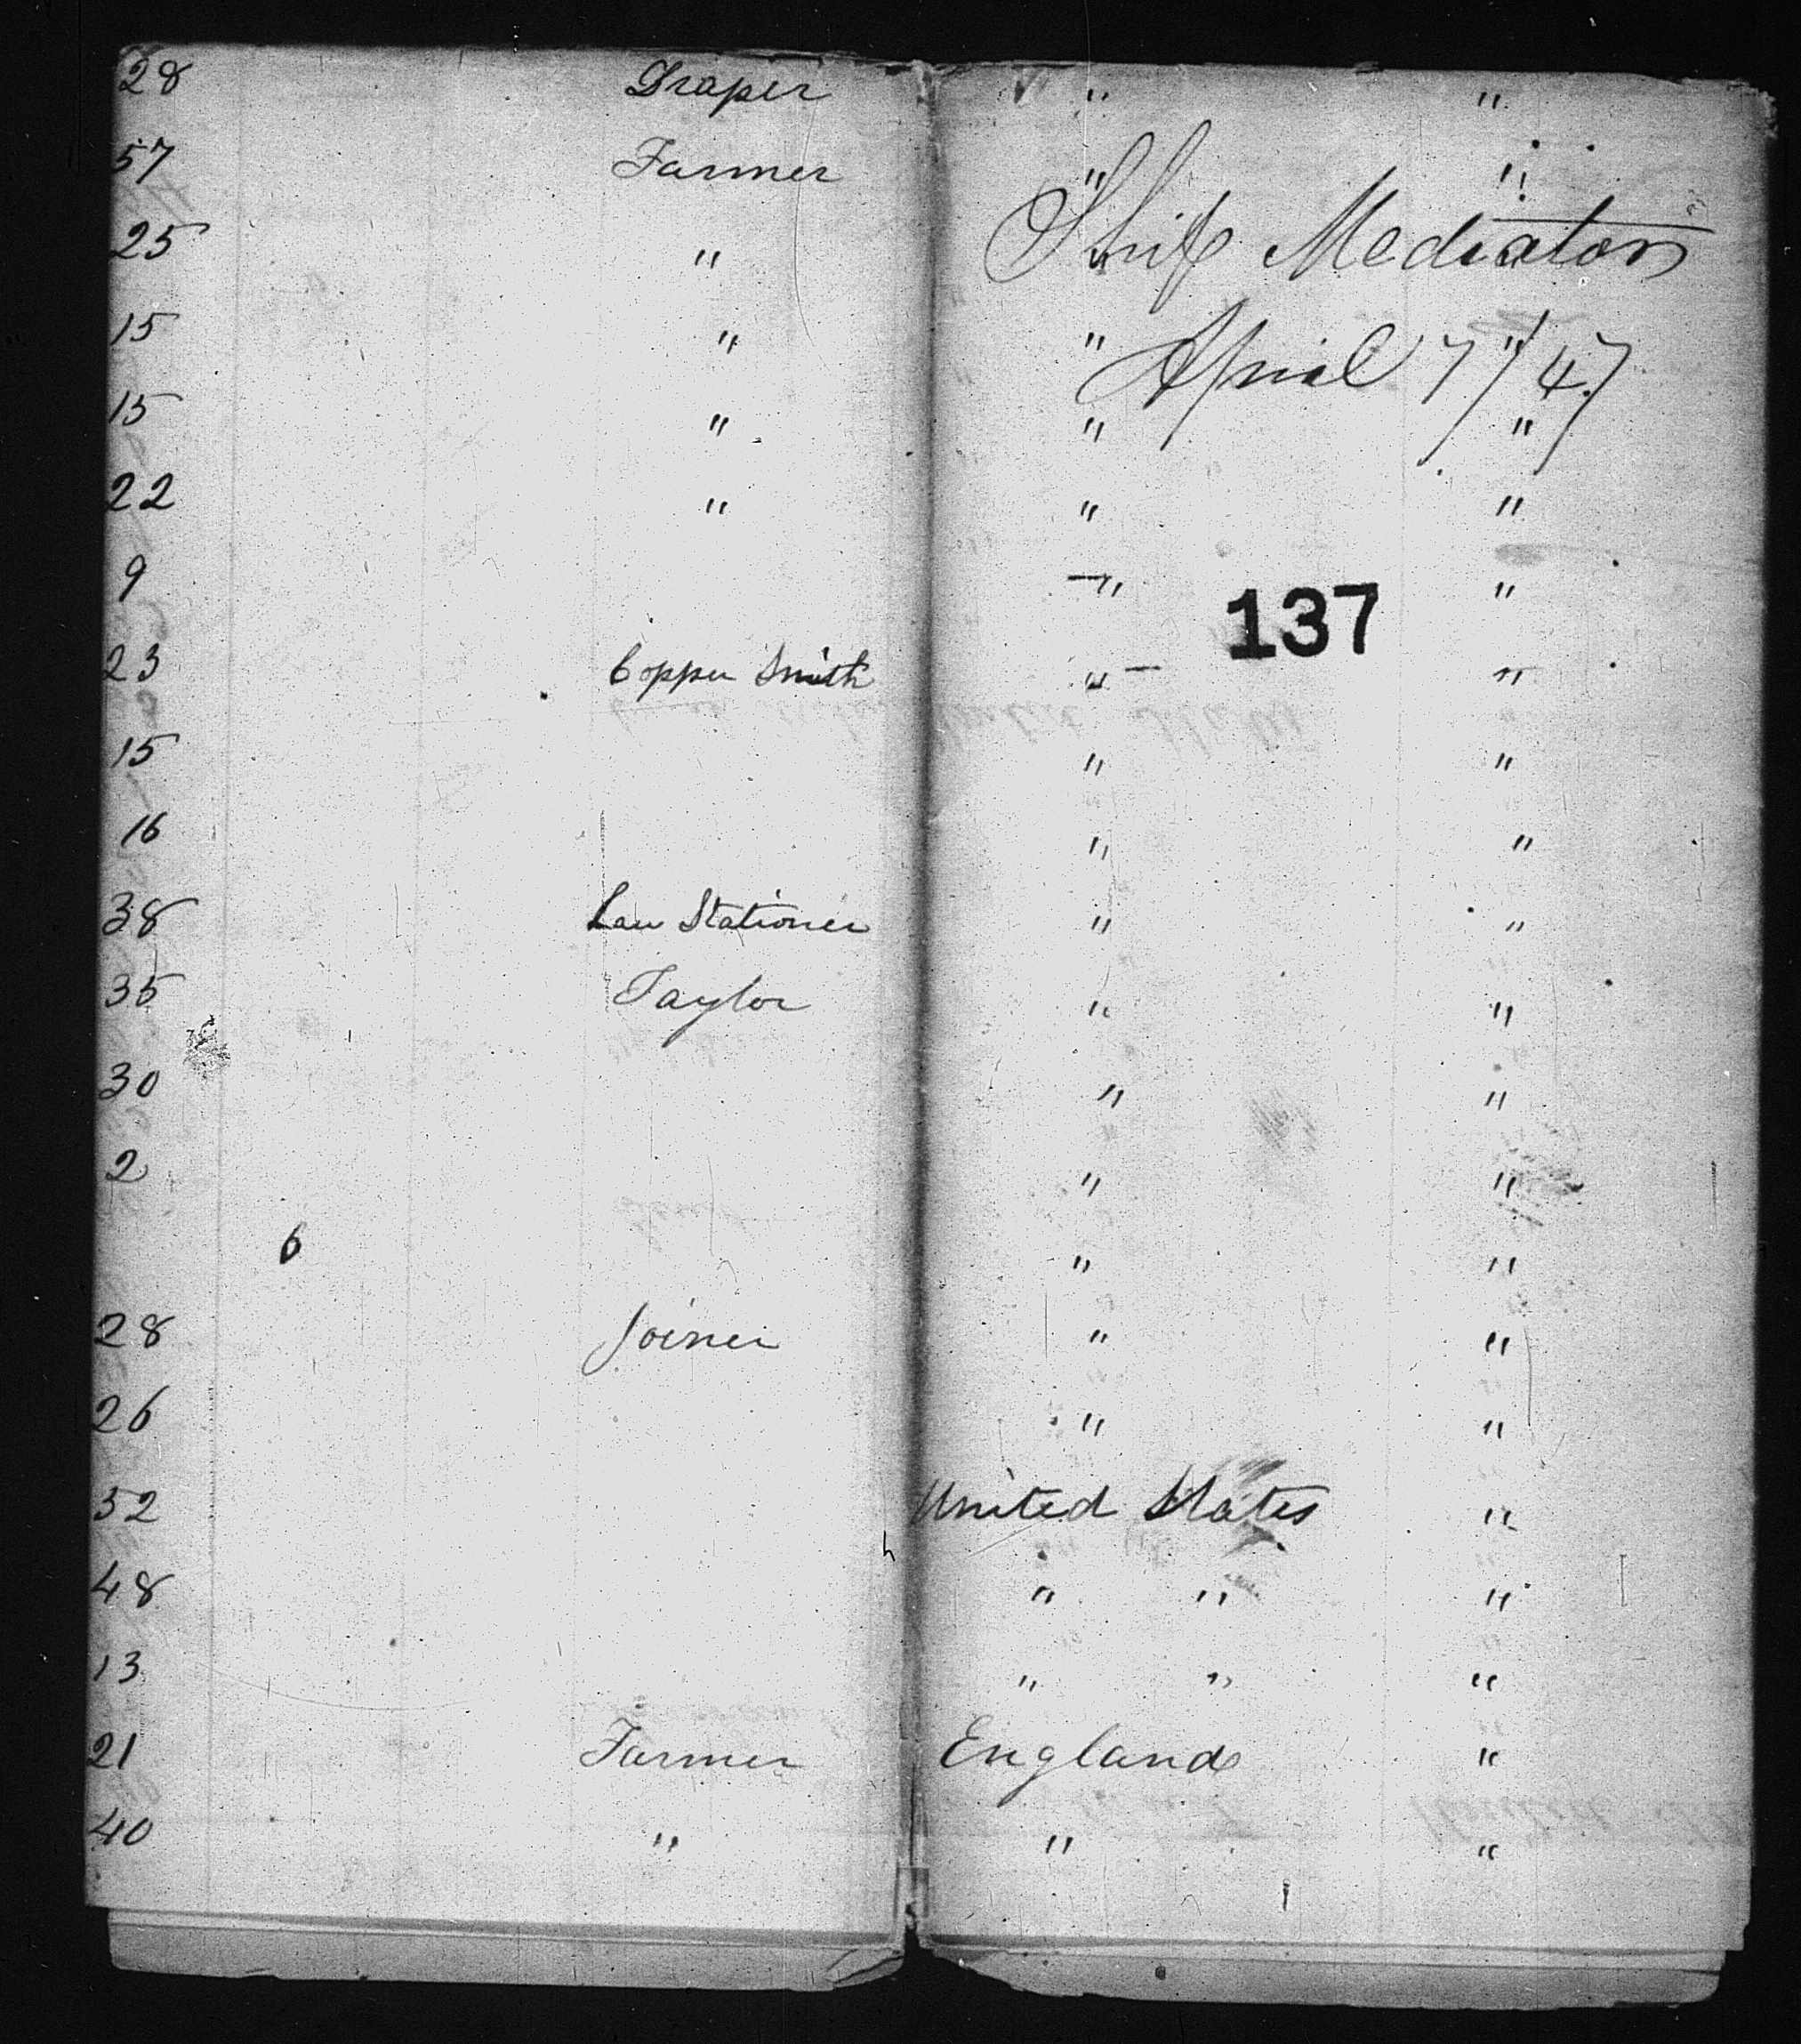 28 Draper " "
57 Farmer " "
Ship Mediator
25 " " "
15 " " "
April 7/47
15 " " "
22 " " "
9 " "
137
23 Copper Smith " "
15 " "
16 " "
38 Law Stationer " "
35 Taylor " "
30 " "
2 " "
6 " "
28 Joiner " "
26 " "
52 United States "
48 " " "
13 " " "
21 Farmer England "
40 " " "